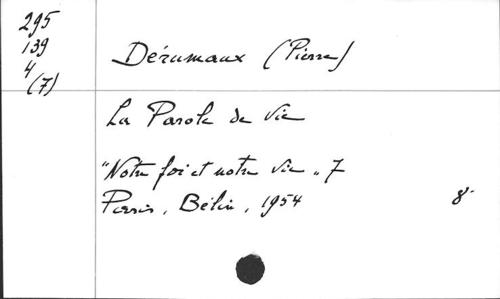 295
139
4
(7)
Dérumaux (Pierre)
La Parole de Vie
"Notre foi et notre vie" 7
Paris, Belin, 1954
8°